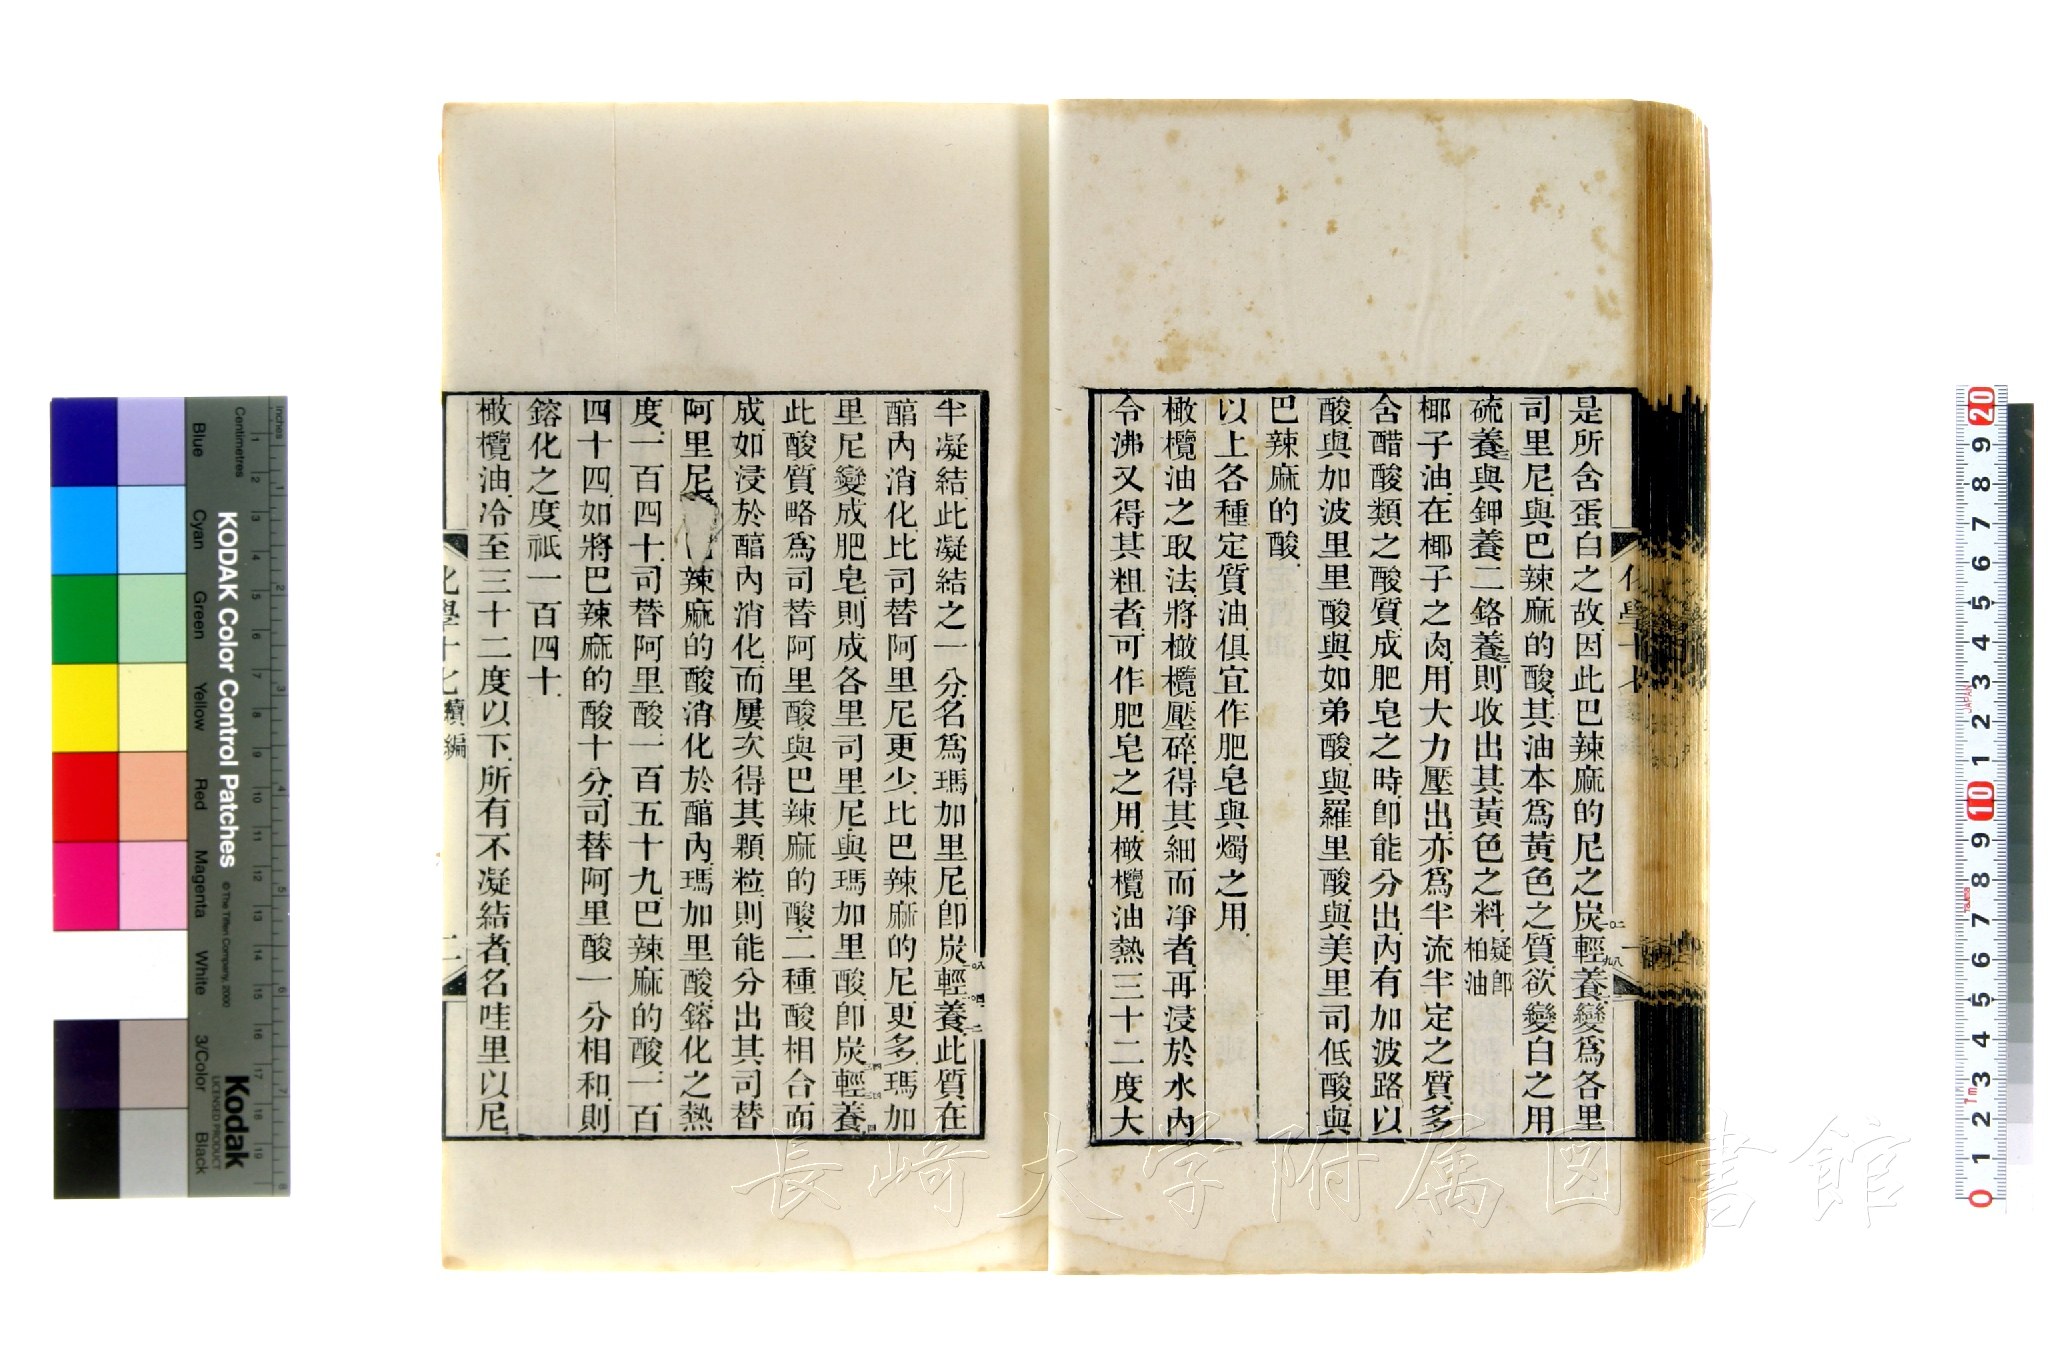 是所含蛋白之故因此巴辣麻的尼之炭輕養變爲各里
司里尼與巴辣麻的酸其油本爲黃色之質欲變白之用
硫養與鉀養二鉻養則收出其黃色之料疑卽柏油
椰子油在椰子之肉用大力壓出亦爲半流半定之質多
含醋酸類之酸質成肥皂之時卽能分出內有加波路以
酸與加波里里酸與如弟酸與羅里酸與美里司低酸與
巴辣麻的酸
以上各種定質油俱宜作肥皂與燭之用
橄欖油之取法將橄欖壓碎得其細而凈者再浸於水內
令沸又得其粗者可作肥皂之用橄欖油熱三十二度大
半凝結此凝結之一分名爲瑪加里尼卽炭輕養此質在
醕內消化比司替阿里尼更少比巴辣麻的尼更多瑪加
里尼變成肥皂則成各里司里尼與瑪加里酸卽炭輕養
此酸質略爲司替阿里酸與巴辣麻的酸二種酸相合而
成如浸於醕內消化而屢次得其顆粒則能分出其司替
阿里尼 辣麻的酸消化於醕內瑪加里酸鎔化之熱
度一百四十司替阿里酸一百五十九巴辣麻的酸一百
四十四如將巴辣麻的酸十分司替阿里酸一分相和則
鎔化之度祇一百四十
橄欖油冷至三十二度以下所有不凝結者名哇里以尼
化學十七 續編 二
長崎大学附属図書館
KODAK Color Control Patches
© The Tiffen Company, 2000
Kodak
LICENSED PRODUCT
Inches
Centimetres
Blue
Cyan
Green
Yellow
Red
Magenta
White
3/Color
Black